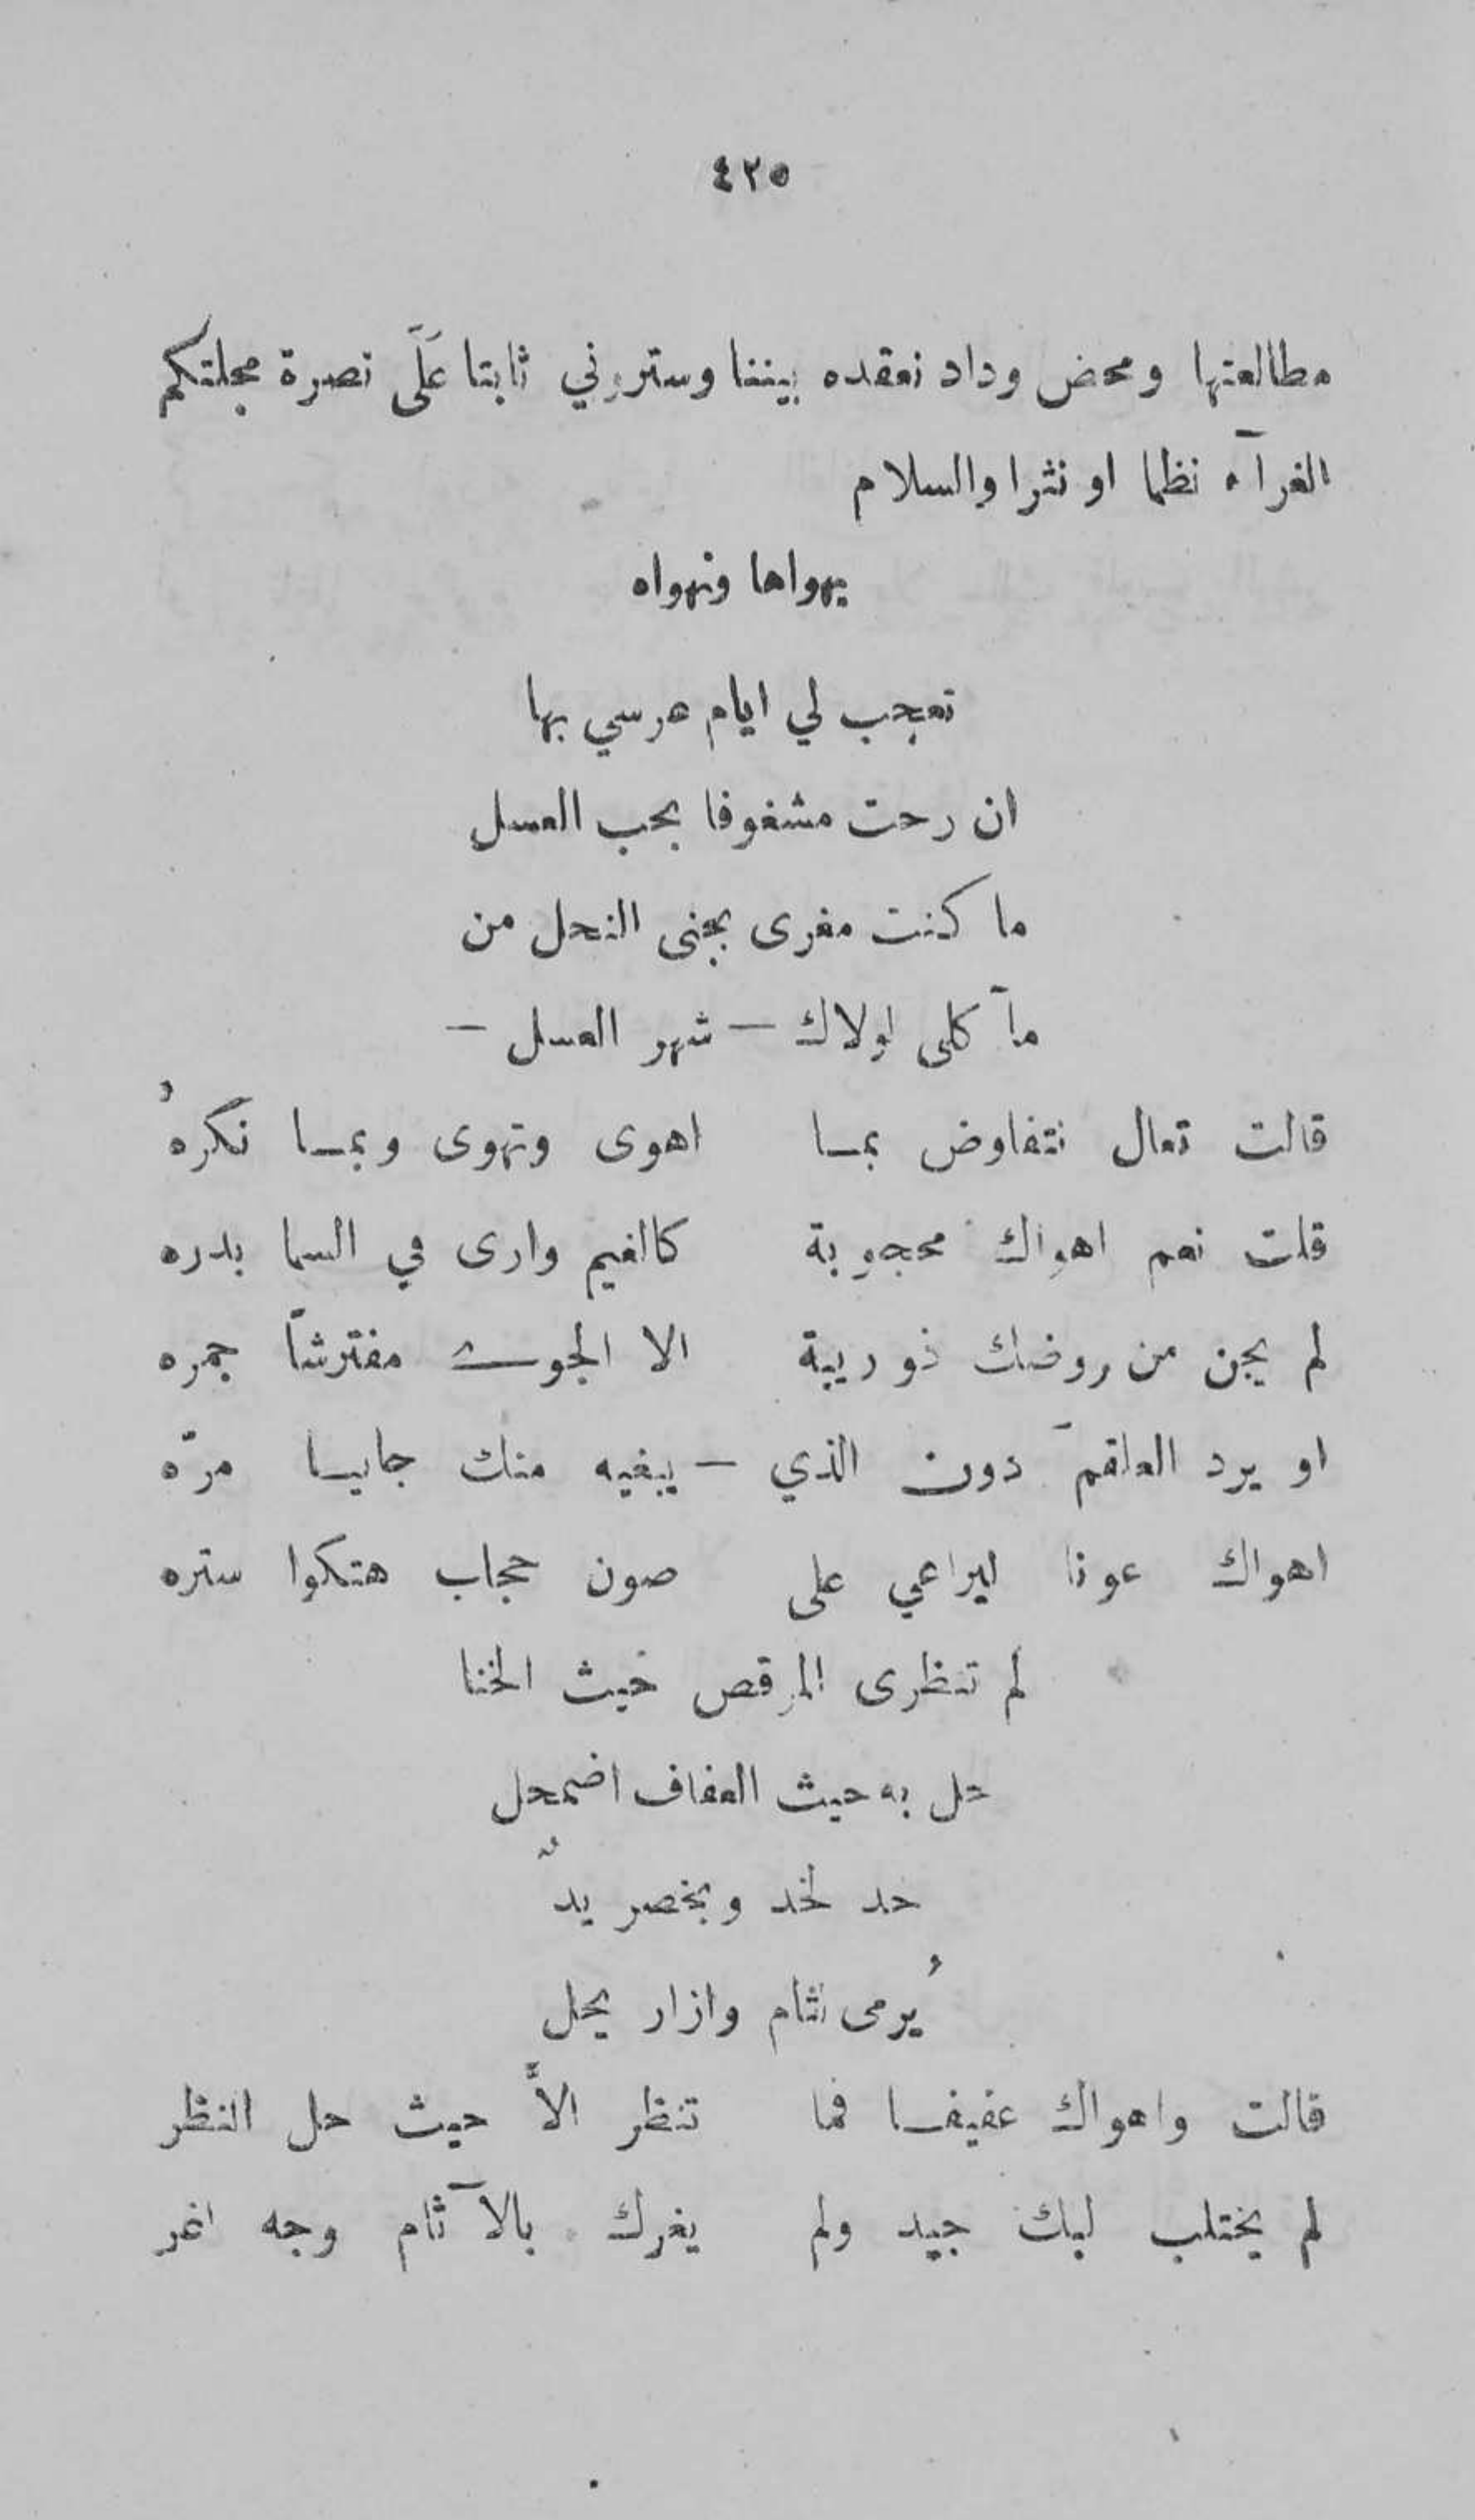 ٤٢٥
مطالعتها ومحض وداد نعقده بيننا وستروني ثابتا عَلَى نصرة مجلتكم
الغرآء نظما او نثرا والسلام
يهواها وتهواه
تعجب لي ايام عرسي بها
ان رحت مشغوفا بحب العسل
ما كنت مغرى بجنى النحل من
مآكلى لولاك — شهر العسل —
قالت تعال نتفاوض بمـا اهوى وتهوى وبمـا نكرهُ
قلت نعم اهواك محجوبة كالغيم وارى في السما بدره
لم يجن من روضك ذو ريبة الا الجوى مفترشاً جمره
او يرد العلقمَ دون الذي — يبغيه منك جايـا مرّه
اهواك عونا ليراعي على صون حجاب هتكوا ستره
لم تنظرى المرقص حيث الخنا
حل به حيث العفاف اضمحل
خد لخد وبخصر يدٌ
يُرمى لثام وازار يحل
قالت واهواك عفيفـا فما تنظر الاَّ حيث حل النظر
لم يختلب لبك جيد ولم يغرك بالآثام وجه اغر